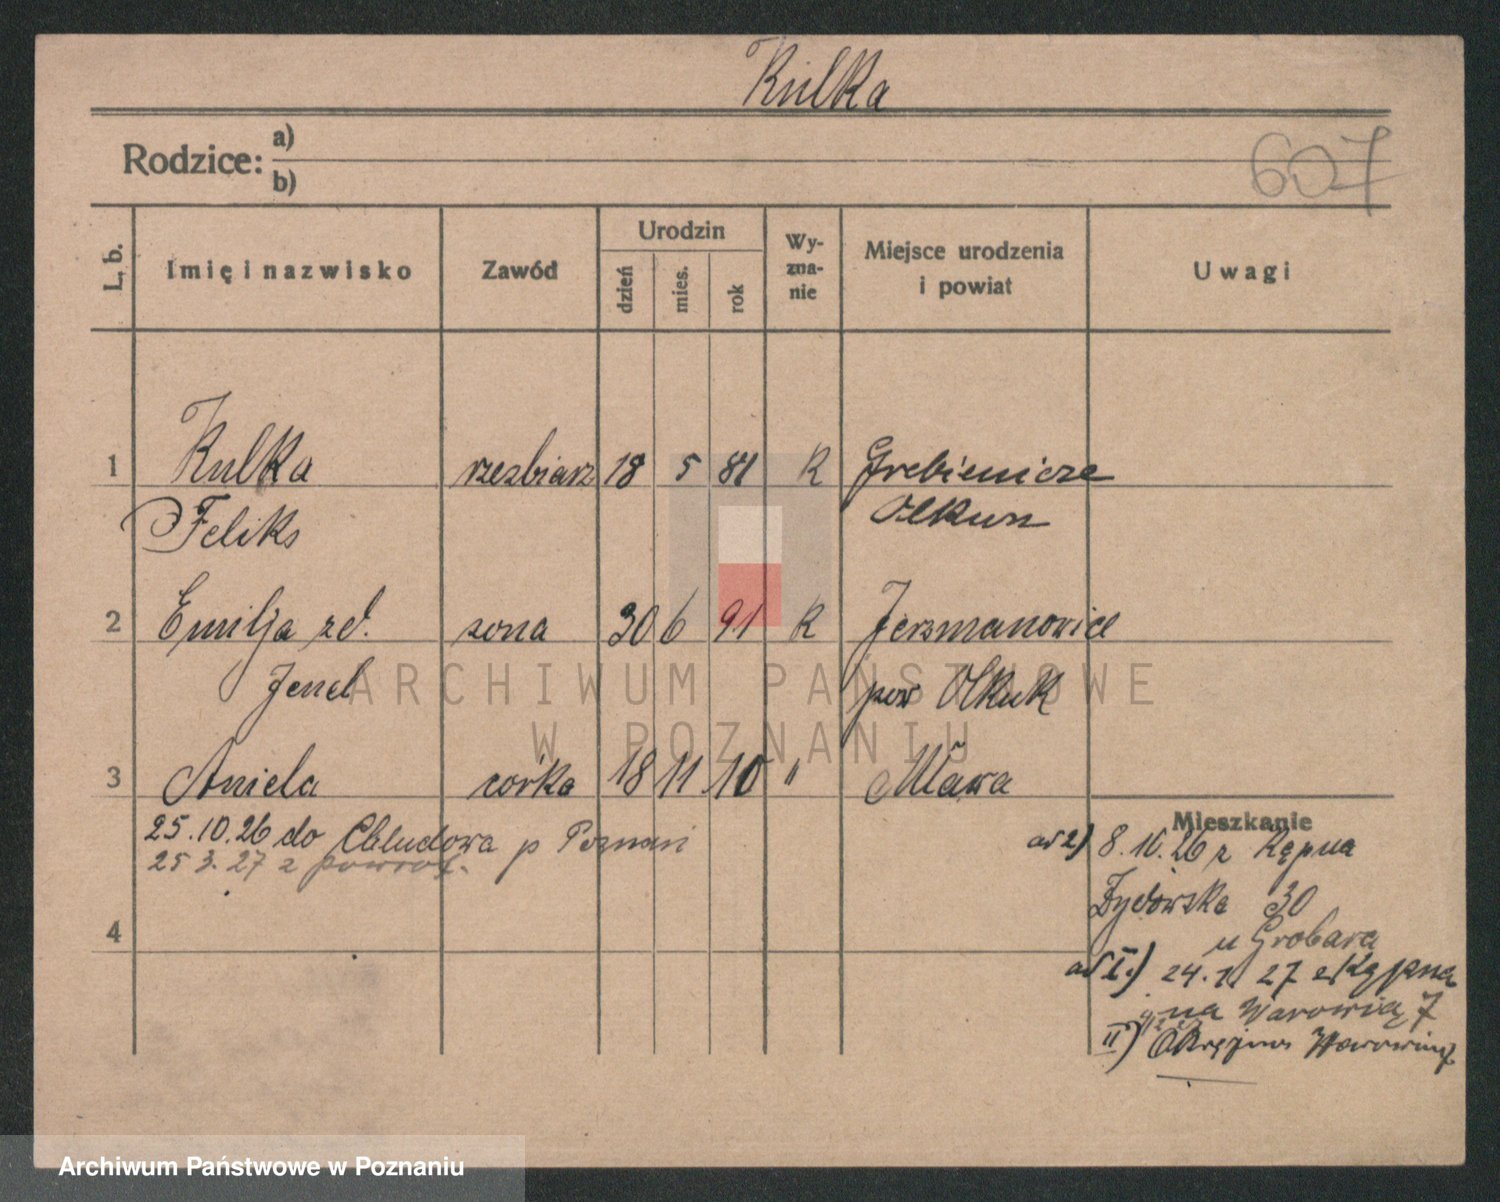 Kulka
Rodzice: a)
b)
607
L. b. Imię i nazwisko Zawód Urodzin dzień mies. rok Wy-zna-nie Miejsce urodzenia i powiat Uwagi
1 Kulka rzezbiarz 18 5 81 R Grebienicze
Feliks Olkusz
2 Emilja zd. zona 30 6 91 R Jerzmanowice
Jenel pow Olkuk
ARCHIWUM PAŃSTWOWE
W POZNANIU
3 Aniela corka 18 11 10 " Mława
25.10.26 do Chludowa p Poznań
25 3. 27 z powrot.
4
Mieszkanie
ad 2) 8.10.26 z Kępna
Żydowska 30
u Grobara
ad I.) 24.1 27 z Kępna
na Warowią 7
II) Okrężna
Archiwum Państwowe w Poznaniu